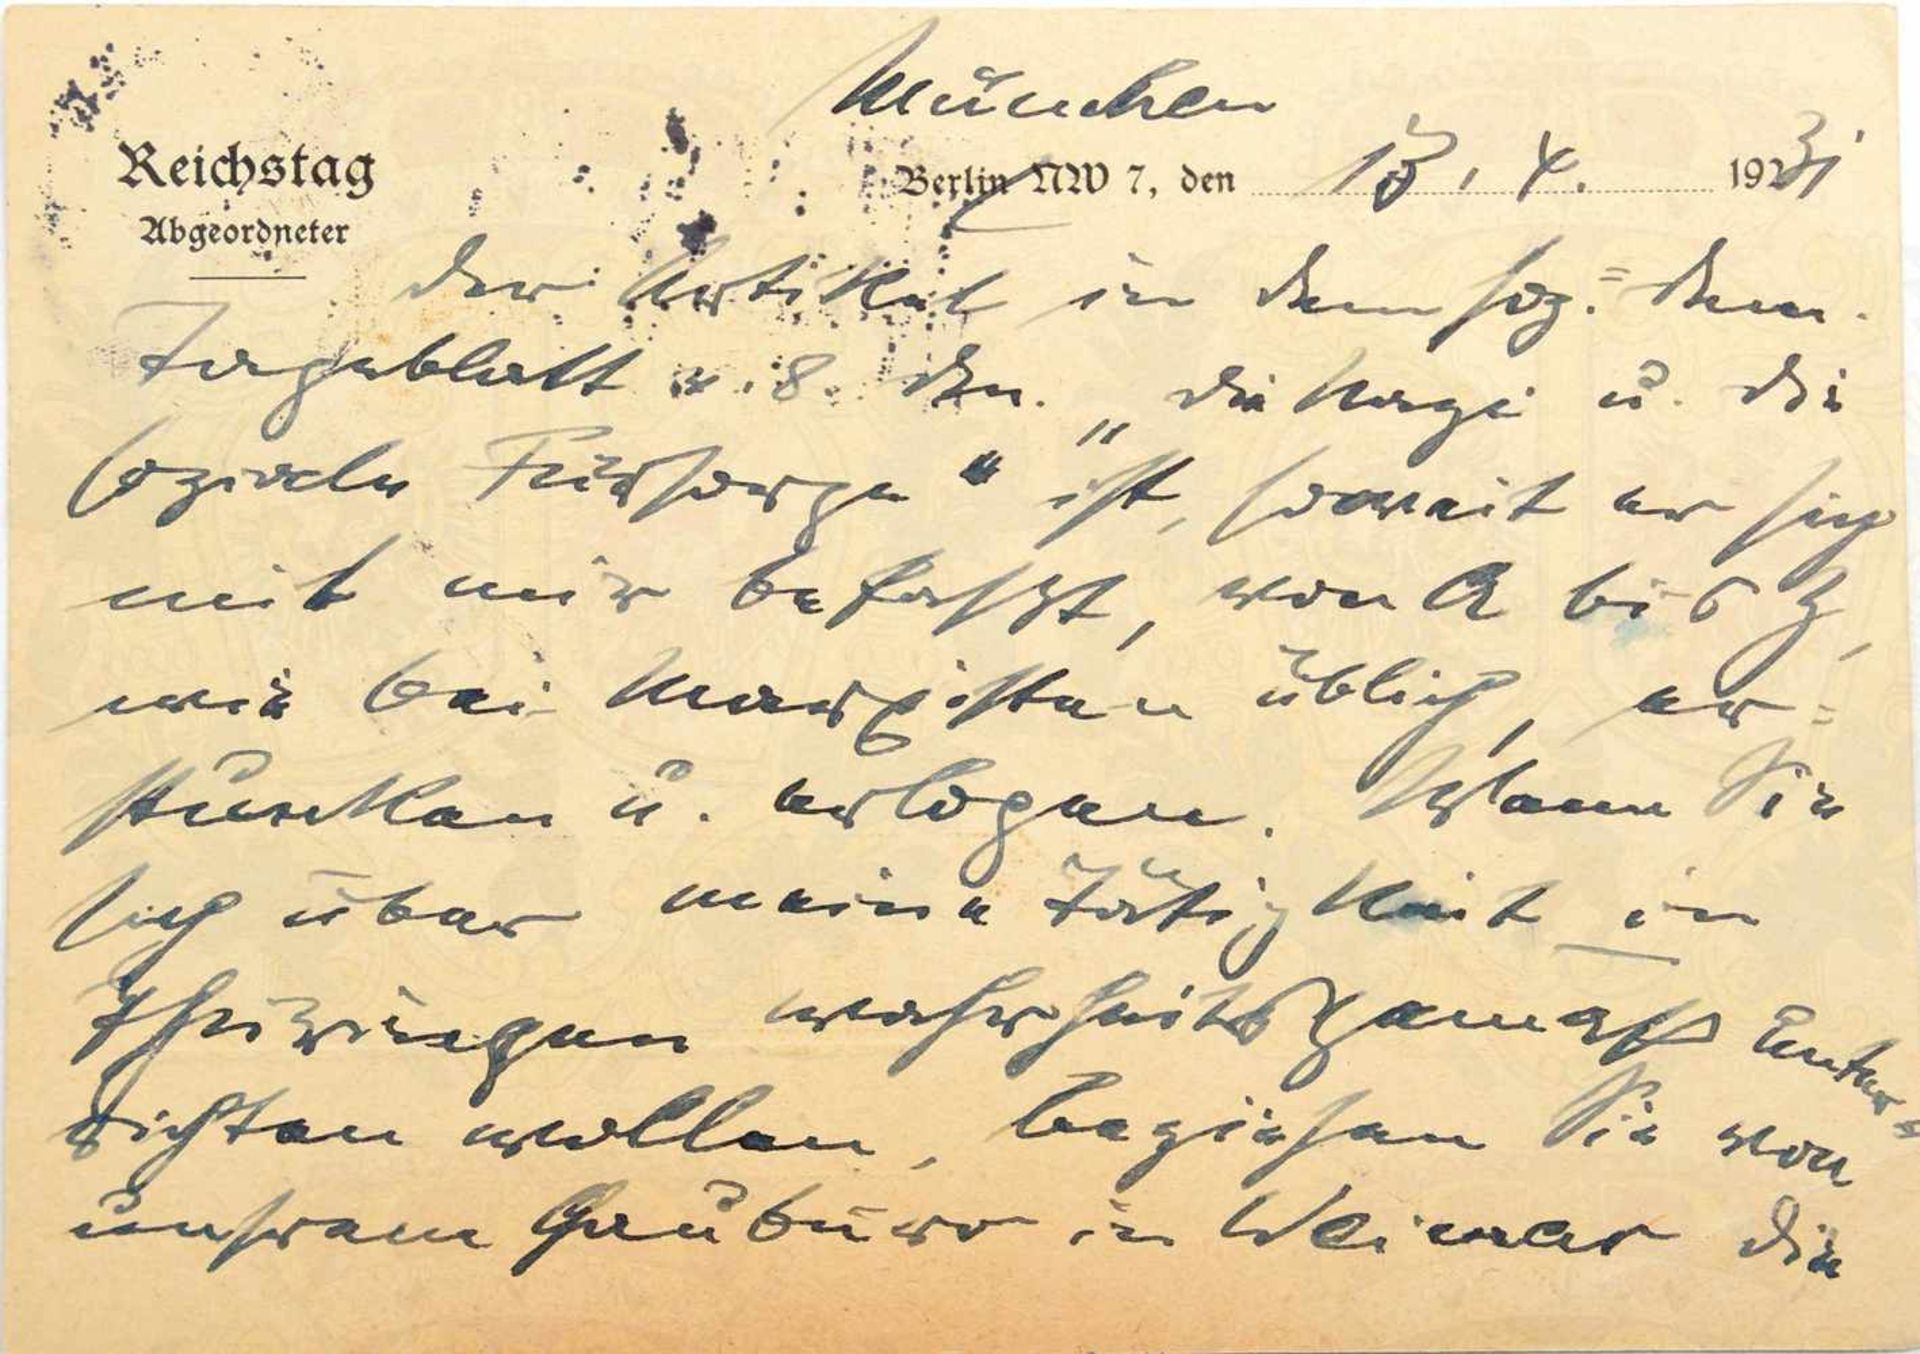 München
Reichstag
Abgeordneter
Berlin NW 7, den 13. 4. 1931
Der Artikel in dem soz.=dem.
Tageblatt v. 8. ds. „Die Nazi u. die
soziale Fürsorge“ ist, soweit er sich
mit mir befaßt, von A bis Z,
wie bei Marxisten üblich, er=
stunken u. erlogen. Wenn Sie
sich über meine Tätigkeit in
Thüringen wahrheitsgemäß unter=
richten wollen, beziehen Sie von
unserem Gaubüro in Weimar die